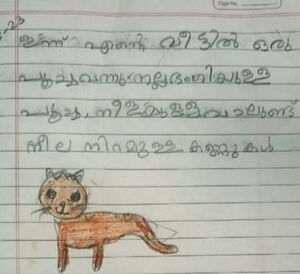 -23
ഇന്ന് എന്റെ വീട്ടിൽ ഒരു
പൂച്ച വന്നു. നല്ല ഭംഗിയുള്ള
പൂച്ച. നീളമുള്ള വാലുണ്ട്
നീല നിറമുള്ള കണ്ണുകൾ
Page No.